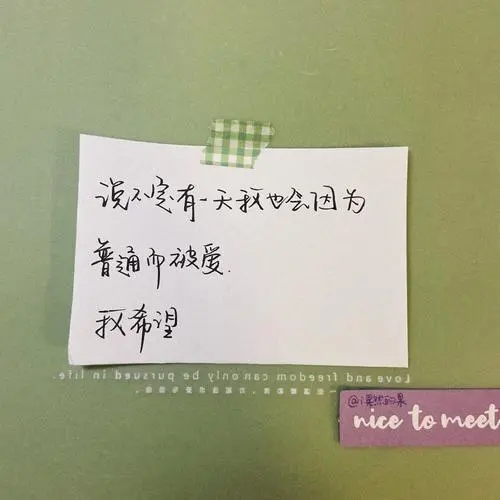 说不定有一天我也会因为
普通而被爱.
我希望
Love and freedom can only be pursued in life
nice to meet